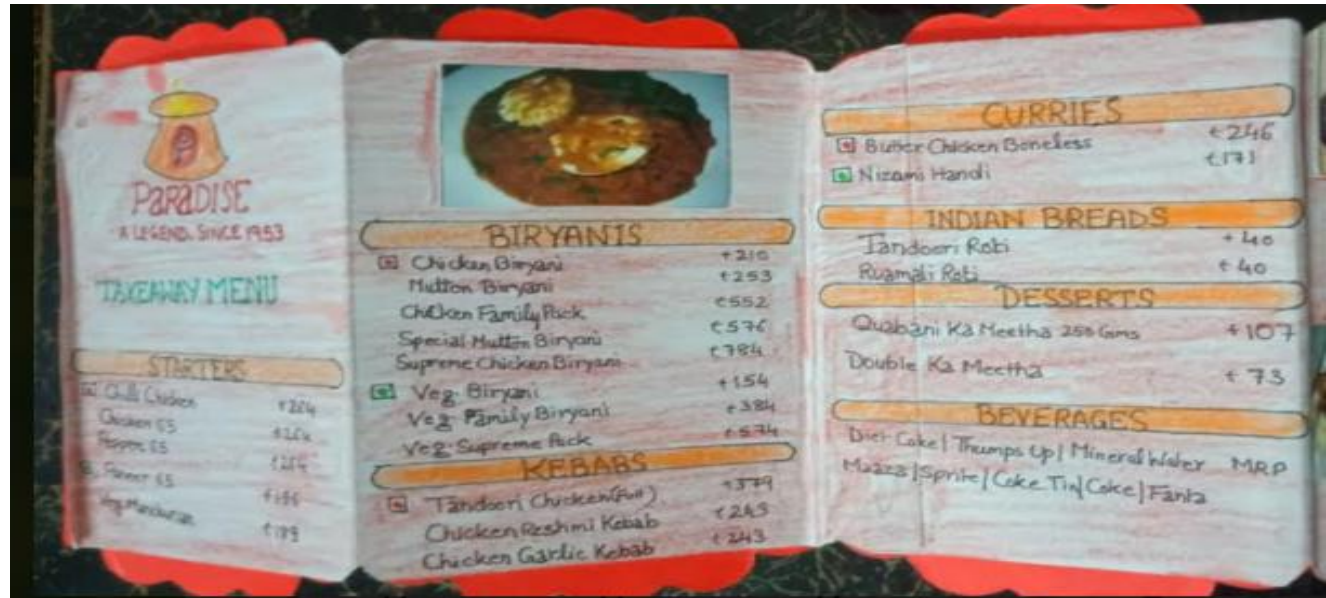 PARADISE
A LEGEND. SINCE 1953
TAKEAWAY MENU
STARTERS
Chilli Chicken ₹264
Chicken 65 ₹264
65 ₹264
Paneer 65
Veg Manchurian ₹179
BIRYANIS
Chicken Biryani ₹210
Mutton Biryani ₹253
Chicken Family Pack ₹552
Special Mutton Biryani ₹576
Supreme Chicken Biryani ₹784
Veg. Biryani ₹154
Veg. Family Biryani ₹384
Veg. Supreme Pack ₹574
KEBABS
Tandoori Chicken (Full) ₹379
Chicken Reshmi Kebab ₹243
Chicken Garlic Kebab ₹243
CURRIES
Butter Chicken Boneless ₹246
Nizami Handi ₹173
INDIAN BREADS
Tandoori Roti ₹40
Ruamali Roti ₹40
DESSERTS
Quabani Ka Meetha 250 Gms ₹107
Double Ka Meetha ₹73
BEVERAGES
Diet Coke | Thumps Up | Mineral Water MRP
Maaza | Sprite | Coke Tin | Coke | Fanta